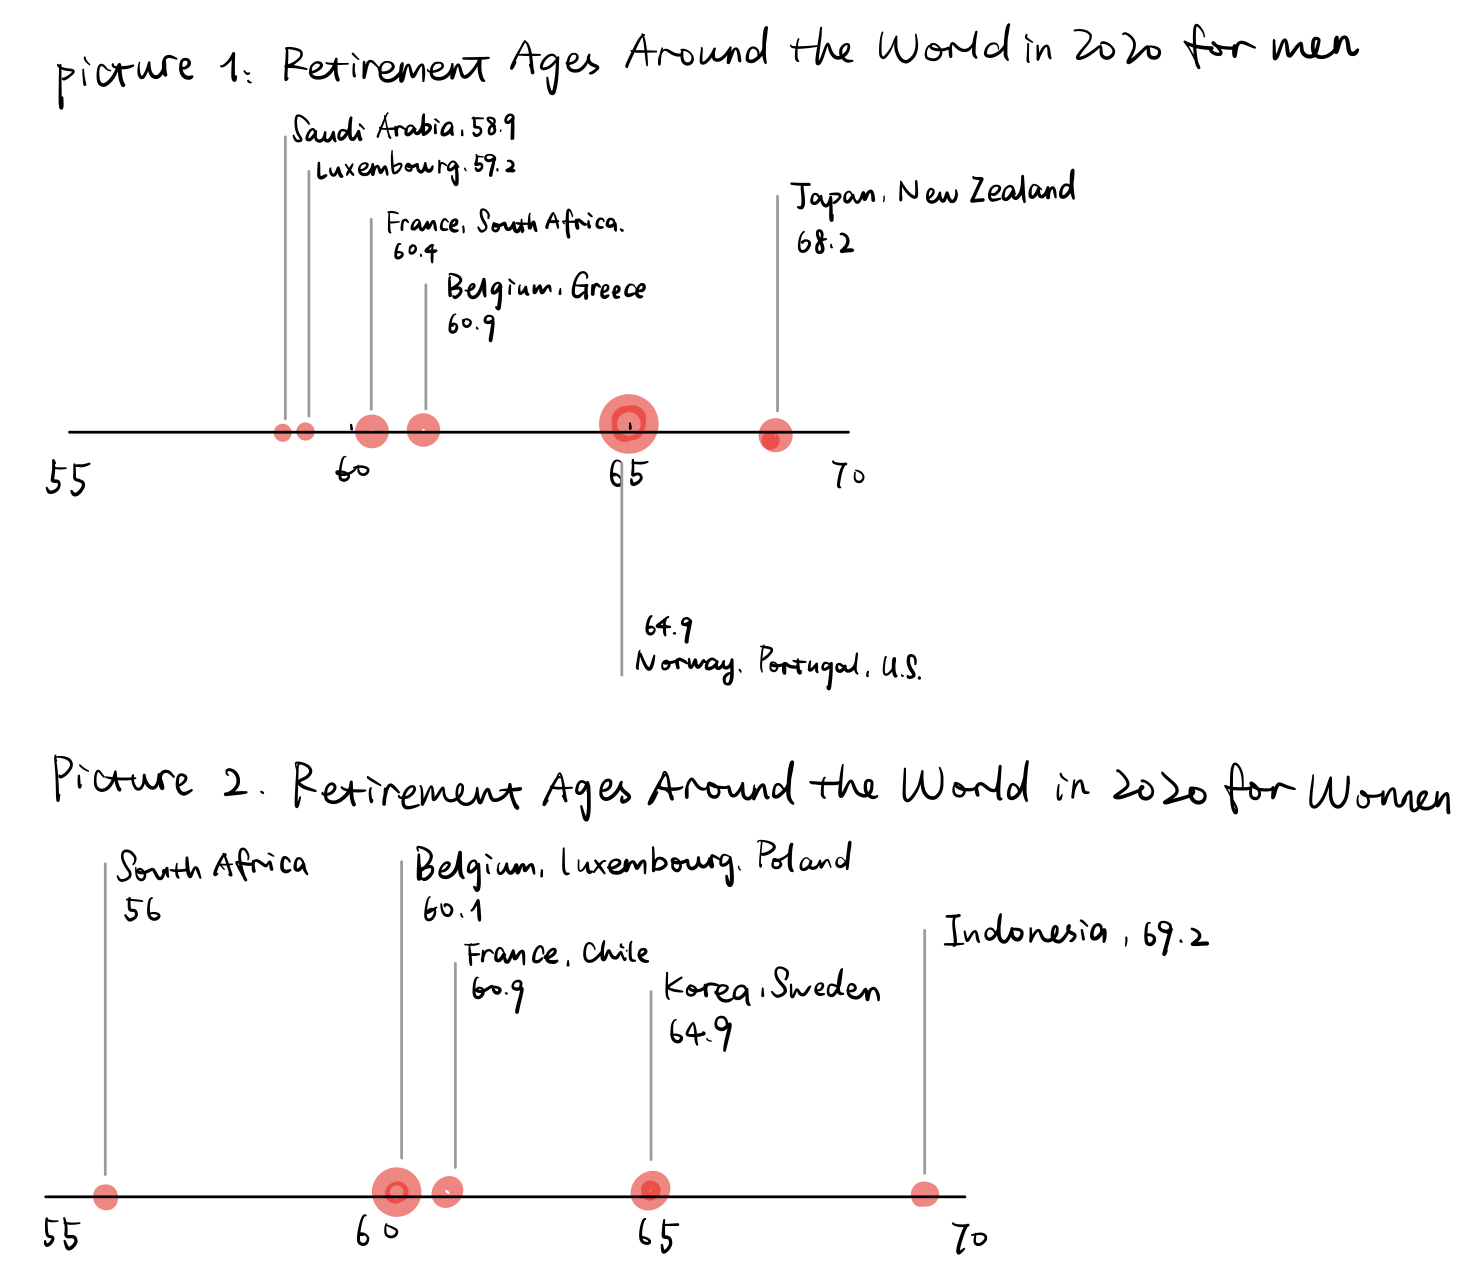 picture 1. Retirement Ages Around the World in 2020 for men
Saudi Arabia, 58.9
Luxembourg. 59.2
France, South Africa.
60.4
Belgium, Greece
60.9
Japan, New Zealand
68.2
55 60 65 70
64.9
Norway, Portugal, U.S.
Picture 2. Retirement Ages Around the World in 2020 for Women
South Africa
56
Belgium, Luxembourg, Poland
60.1
France, Chile
60.9
Korea, Sweden
64.9
Indonesia, 69.2
55 60 65 70